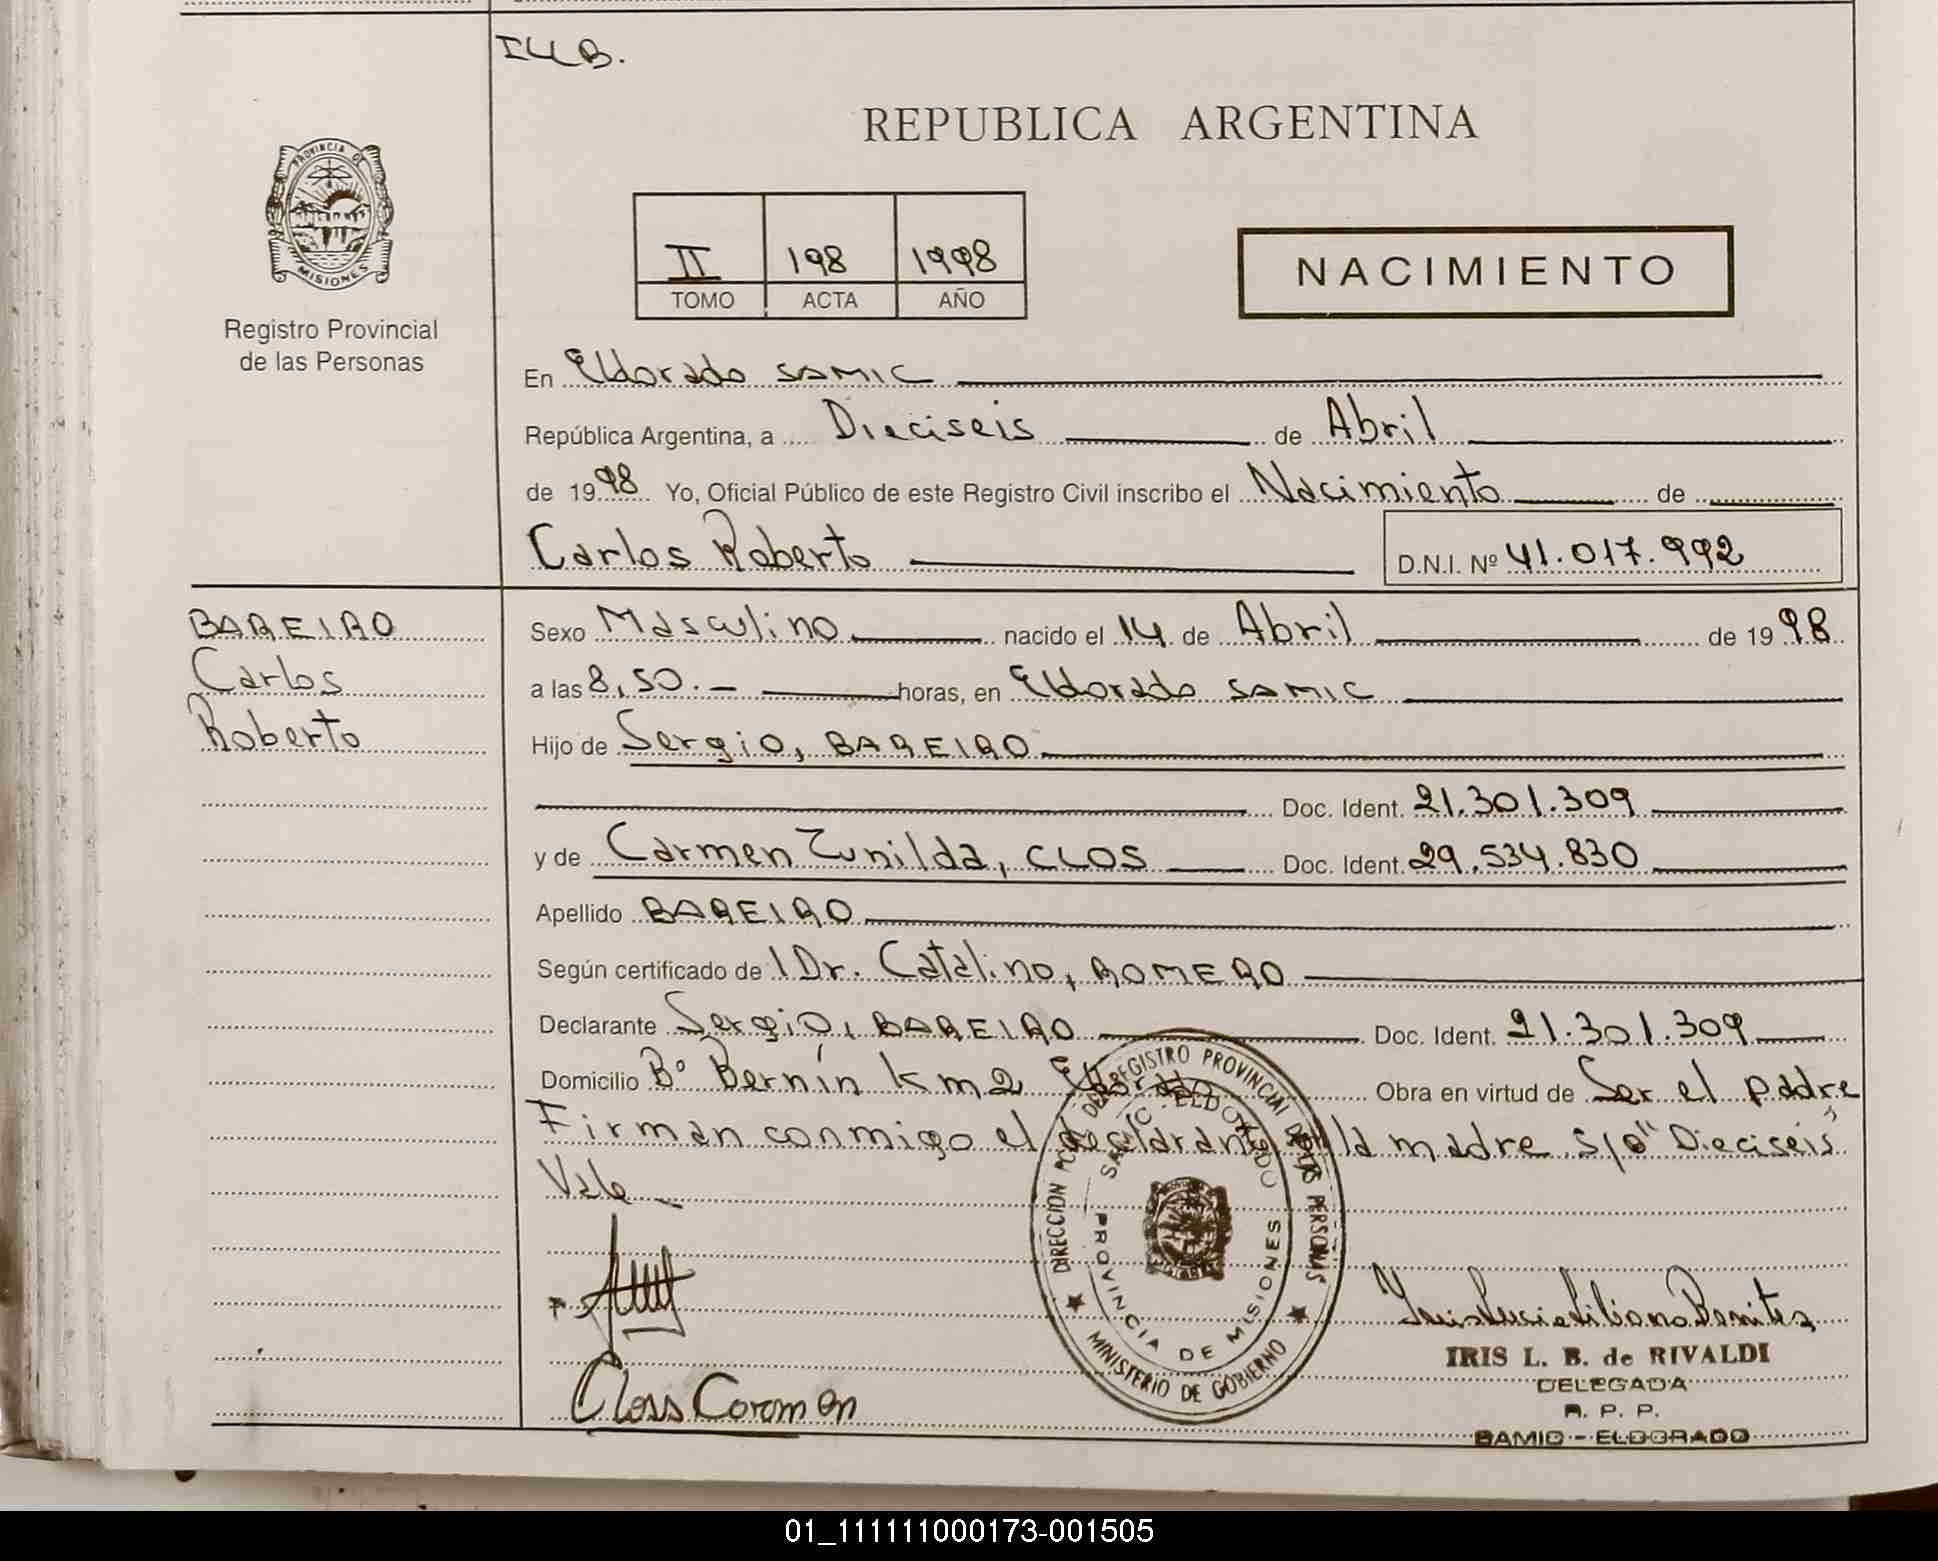 ILB.
REPUBLICA ARGENTINA
PROVINCIA DE
MISIONES
II 198 1998
TOMO ACTA AÑO
NACIMIENTO
Registro Provincial
de las Personas
En Eldorado SAMIC
República Argentina, a Dieciseis de Abril
de 1998 Yo, Oficial Público de este Registro Civil inscribo el Nacimiento de
Carlos Roberto D.N.I. Nº 41.017.992
BAREIRO
Carlos
Roberto
Sexo Masculino nacido el 14 de Abril de 1998
a las 8,50.- horas, en Eldorado SAMIC
Hijo de Sergio, BAREIRO
Doc. Ident. 21.301.309
y de Carmen Zunilda, CLOS Doc. Ident. 29.534.830
Apellido BAREIRO
Según certificado de l Dr. Catalino, ROMERO
Declarante Sergio, BAREIRO Doc. Ident. 21.301.309
Domicilio Bº Bernín km 2 Eldorado Obra en virtud de Ser el padre
Firman conmigo el declarante y la madre s/o "Dieciseis"
Vale
DIRECCION DEL REGISTRO PROVINCIAL DE LAS PERSONAS
SAMIC - ELDORADO
PROVINCIA DE MISIONES
MINISTERIO DE GOBIERNO
Closs Carmen
IRIS L. B. de RIVALDI
DELEGADA
R. P. P.
SAMIC - ELDORADO
01_111111000173-001505